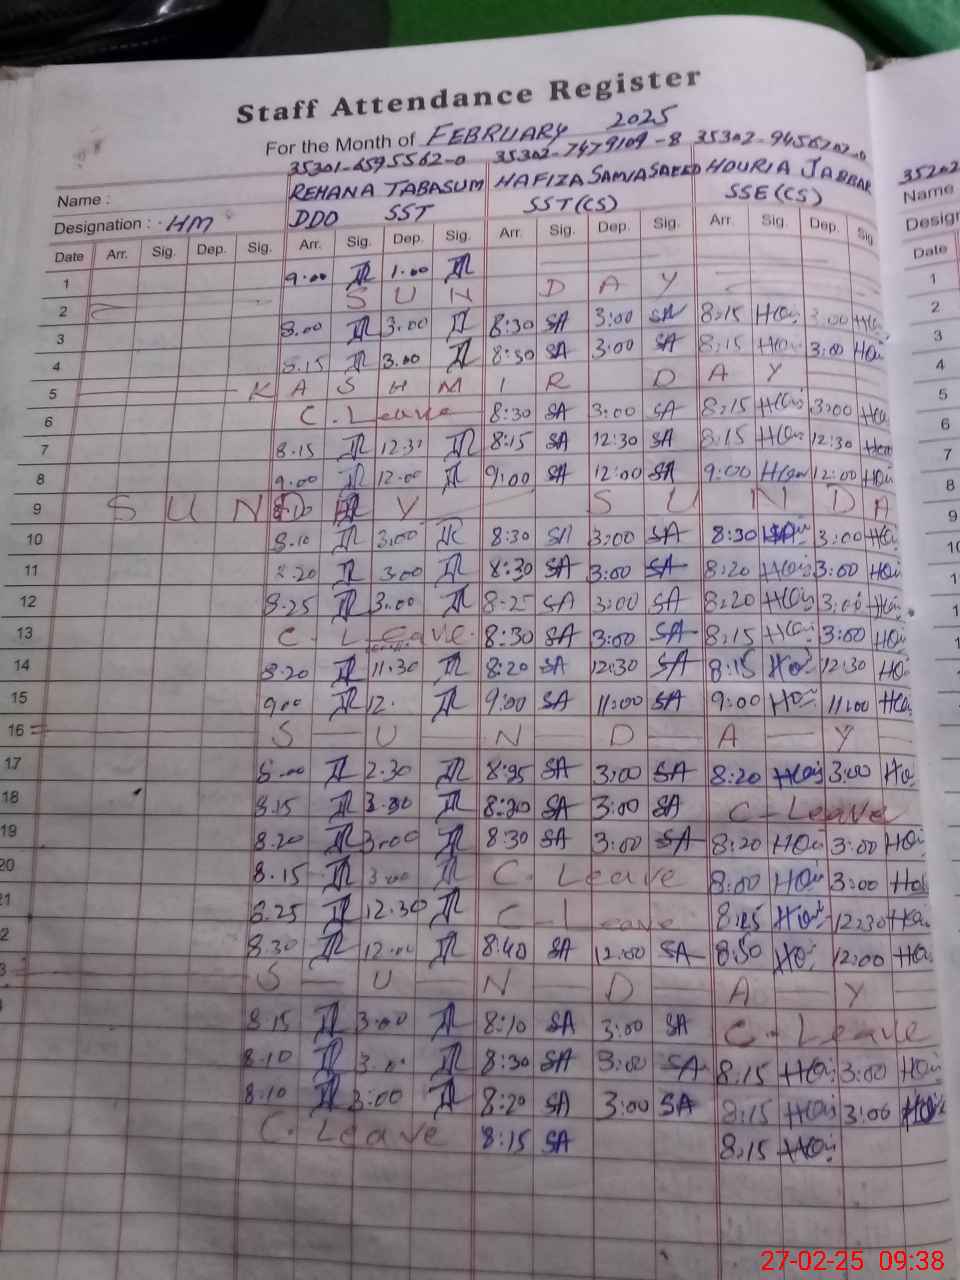 Staff Attendance Register
For the Month of FEBRUARY 2025
35301-6595562-0 35302-7479109-8 35302-9456202-0 35202
Name : REHANA TABASUM HAFIZA SAMIA SAEED HOURIA JABBAR Name
Designation : HM DDO SST SST (CS) SSE (CS) Design
Date Arr. Sig. Dep. Sig. Arr. Sig. Dep. Sig. Arr. Sig. Dep. Sig. Arr. Sig. Dep. Sig. Date
1 9.00 1.00 1
2 S U N D A Y 2
3 8.00 3.00 8:30 SA 3:00 SA 8:15 3:00 3
4 8.15 3.00 8:30 SA 3:00 SA 8:15 3:00 4
5 K A S H M I R D A Y 5
6 C. Leave 8:30 SA 3:00 SA 8:15 3:00 6
7 8.15 12.30 8:15 SA 12:30 SA 8:15 12:30 7
8 9.00 12.00 9:00 SA 12:00 SA 9:00 12:00 8
9 S U N D A Y S U N D A 9
10 8.10 3.00 8:30 SA 3:00 SA 8:30 3:00 10
11 8.20 3.00 8:30 SA 3:00 SA 8:20 3:00
12 8.25 3.00 8:25 SA 3:00 SA 8:20 3:00
13 C. Leave 8:30 SA 3:00 SA 8:15 3:00
14 8.20 11.30 8:20 SA 12:30 SA 8:15 12:30
15 9.00 12. 9:00 SA 11:00 SA 9:00 11:00
16 S U N D A Y
17 8.00 2.30 SA 3:00 SA 8:20 3:00
18 8.15 3.00 8:20 SA 3:00 SA C-Leave
19 8.20 3.00 8:30 SA 3:00 SA 8:20 3:00
20 8.15 3.00 C. Leave 8:00 3:00
8.25 12.30 C-Leave 12:30
8.30 12.00 8:40 SA 12:00 SA 8:50 12:00
S U N D A Y
8.15 3.00 8:10 SA 3:00 SA C-Leave
8.10 3.00 8:30 SA 3:00 SA 8:15 3:00
8.10 3:00 8:20 SA 3:00 SA 8:15 3:00
C. Leave 8:15 SA 8:15
27-02-25 09:38